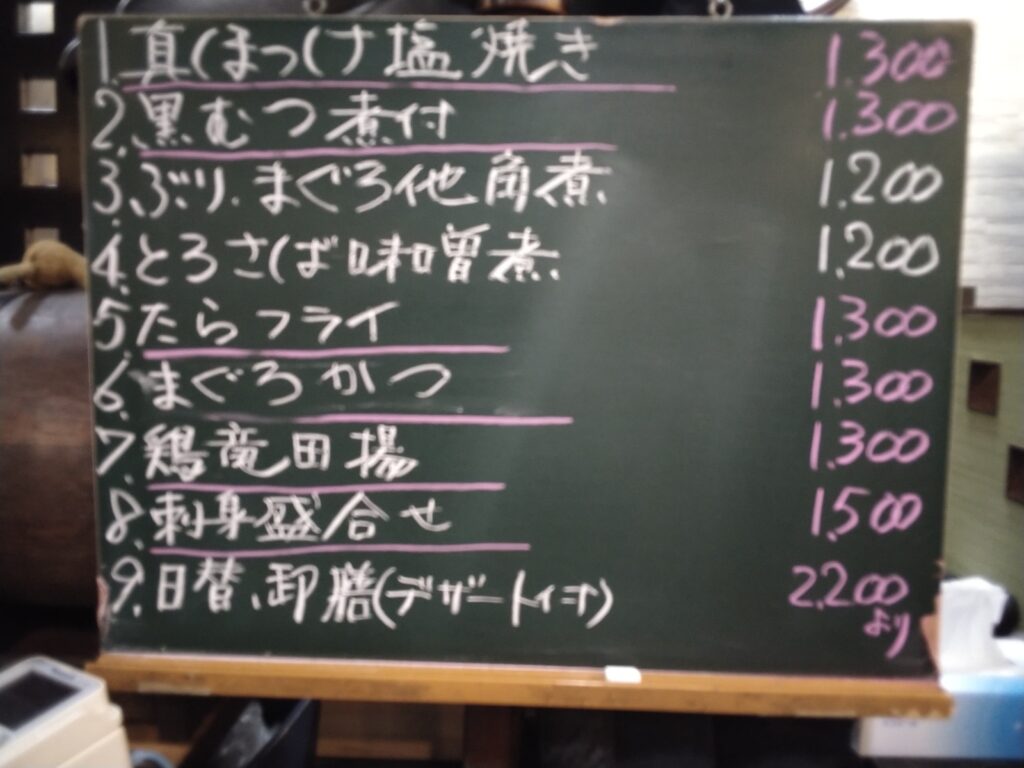 1. 真ほっけ塩焼き 1.300
2. 黒むつ煮付 1.300
3. ぶり.まぐろ他角煮 1.200
4. とろさば味噌煮 1.200
5 たらフライ 1.300
6. まぐろかつ 1.300
7. 鶏竜田揚 1.300
8. 刺身盛合せ 1.500
9. 日替、卸膳(デザート付) 2.200
より